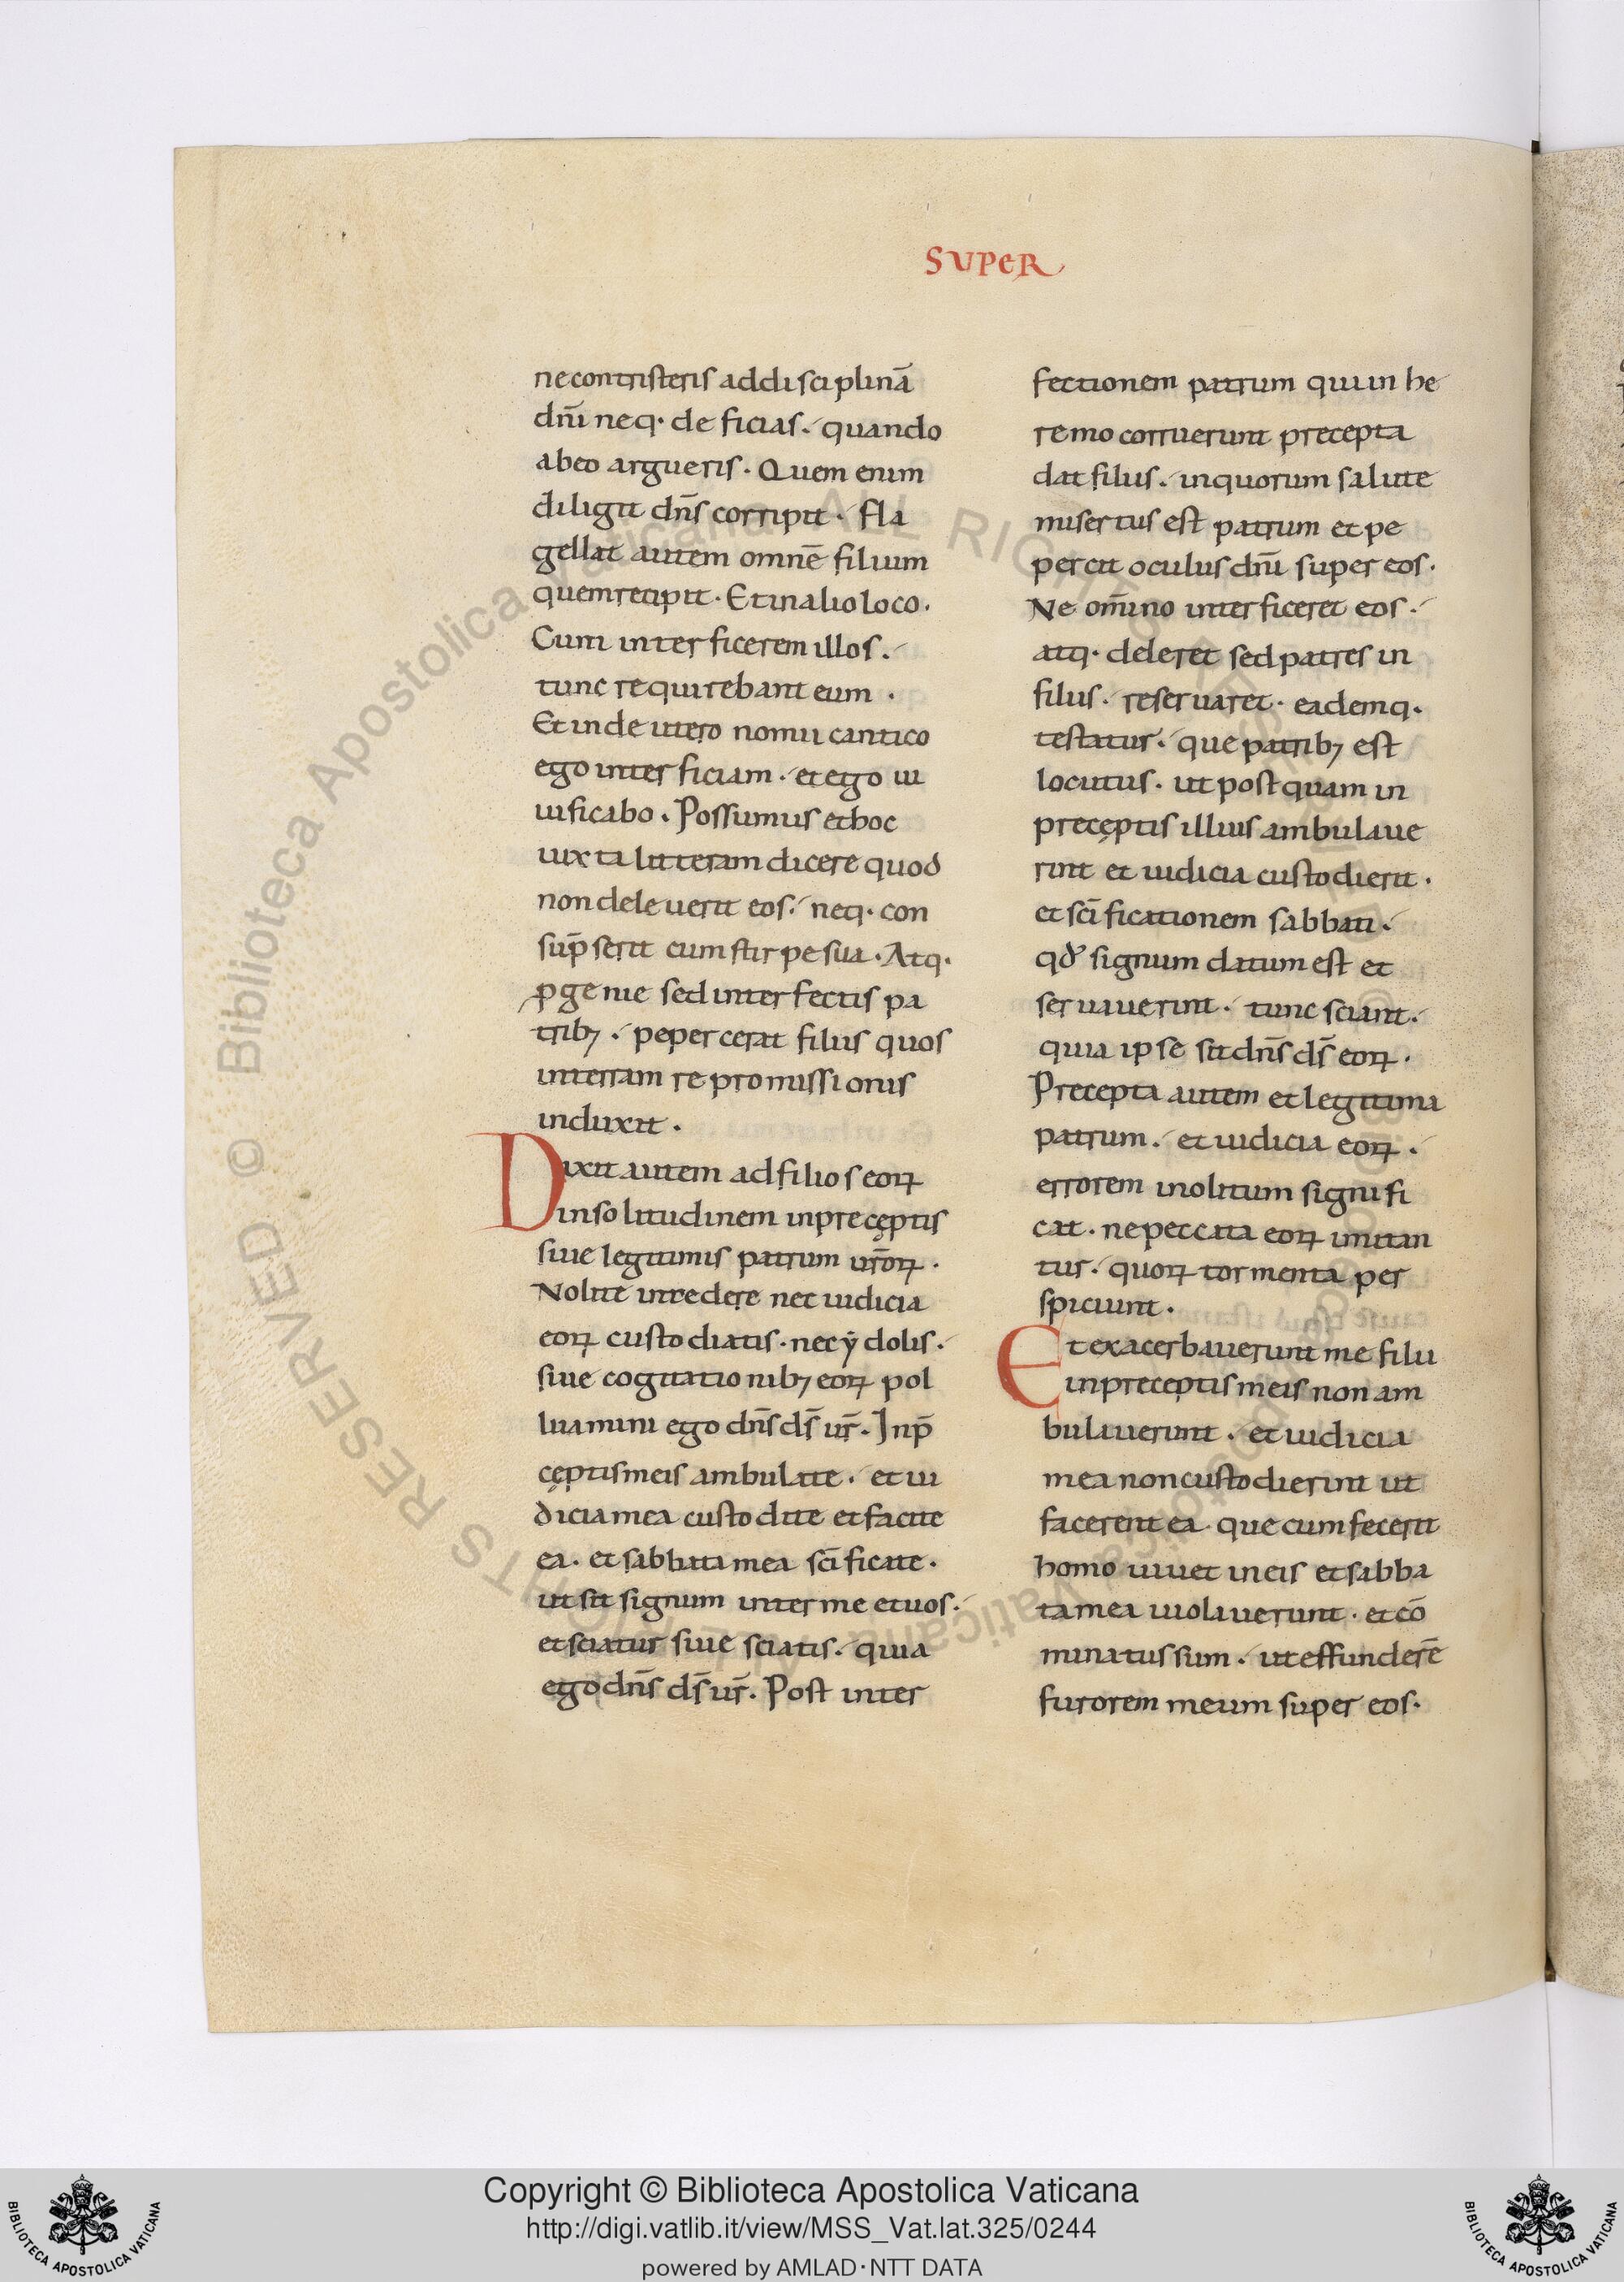 SUPER
ne contristeris ad disciplinā
dn̄i neq· deficias· quando
ab eo argueris· Quem enim
diligit dn̄s corripit· Fla
gellat autem omnē filium
quem recipit· Et in alio loco·
Cum interficerem illos·
tunc requirebant eum·
Et in deuteronomii cantico
ego interficiam· et ego ui
uificabo· Possumus et hoc
iuxta litteram dicere quod
non deleuerit eos· neq· con
sūpserit cum stirpe sua· Atq·
ꝓgenie sed interfectis pa
trib; · pepercerat filiis quos
in terram repromissionis
induxit·
Dixit autem ad filios eoꝝ
in solitudinem in preceptis
siue legitimis patrum ur̄oꝝ·
Nolite incedere nec iudicia
eoꝝ custodiatis· nec ẏdolis·
siue cogitationib; eoꝝ pol
luamini ego dn̄s ds̄ ur̄· In p̄
ceptis meis ambulate· et iu
dicia mea custodite et facite
ea· et sabbata mea sc̄ificate·
ut sit signum inter me et uos·
et sciatur siue sciatis· quia
ego dn̄s ds̄ ur̄· Post inter
fectionem patrum qui in he
remo corruerunt precepta
dat filiis· in quorum salute
misertus est patrum et pe
percit oculus dn̄i super eos·
Ne om̄ino interficeret eos·
atq· deleret sed patres in
filiis· reseruaret· eademq·
testatur· que patrib; est
locutus· ut postquam in
preceptis illius ambulaue
rint et iudicia custodierit·
et sc̄ificationem sabbati·
qd̄ signum datum est et
seruauerint· tunc sciant·
quia ipse sit dn̄s ds̄ eoꝝ·
Precepta autem et legitima
patrum· et iudicia eoꝝ·
errorem inolitum signifi
cat· ne peccata eoꝝ imitan
tur· quoꝝ tormenta per
spiciunt·
Et exacerbauerunt me filii
in preceptis meis non am
bulauerunt· et iudicia
mea non custodierint ut
facerent ea· que cum fecerit
homo uiuet in eis et sabba
ta mea uiolauerunt· et cō
minatus sum· ut effunderē
furorem meum super eos·
Copyright © Biblioteca Apostolica Vaticana
http://digi.vatlib.it/view/MSS_Vat.lat.325/0244
powered by AMLAD·NTT DATA
BIBLIOTECA APOSTOLICA VATICANA
BIBLIOTECA APOSTOLICA VATICANA